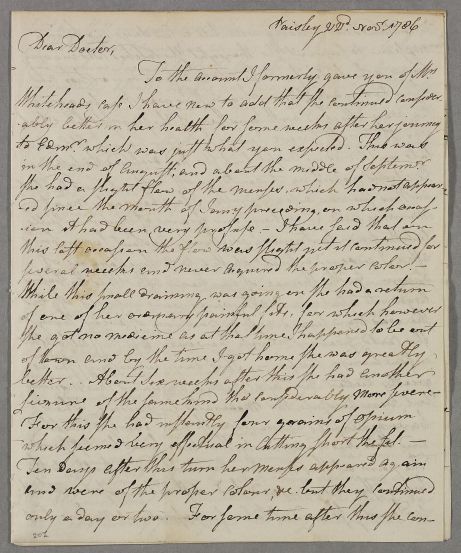 Paisley 22d. Novr. 1786
Dear Doctor,
To the account I formerly gave you of Mrs
Whitehead's case I have now to add that she continued consider-
ably better in her health for some weeks after her journey
to Edinr. which was just what you expected. This was
in the end of August, and about the middle of Septemr.
she had a slight flow of the menses, which had not appear-
ed since the month of Jany preceeding, on which occas-
sion it had been very profuse — I have said that on
this last occasion the flow was slight yet it continued for
several weeks and never acquired the proper color. —
While this small draining was going on she had a return
of one of her ordinary painful fits, for which however
she got no medicine as at that time I happened to be out
of town and by the time I got home she was greatly
better. About six weeks after this she had another
seizure of the same kind tho' considerably more severe —
For this she had instantly four grains of opium
which seemed very effectual in cutting short the fit. —
Ten Days after this turn her menses appeared again
and were of the proper colour &c. but they continued
only a day or two. For some time after this she con-